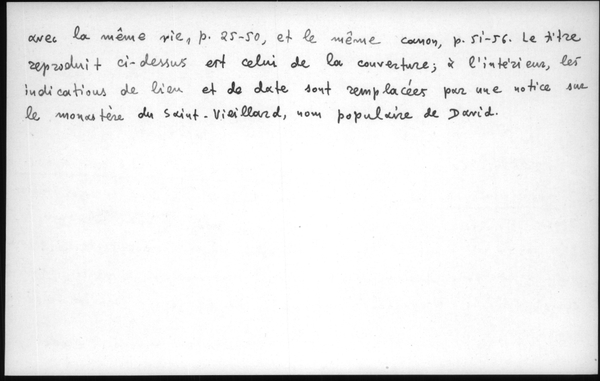 avec la même vie, p. 25-50, et le même canon, p. 51-56. Le titre
reproduit ci-dessus est celui de la couverture; à l'intérieur, les
indications de lieu et de date sont remplacées par une notice sur
le monastère du Saint-Vieillard, nom populaire de David.